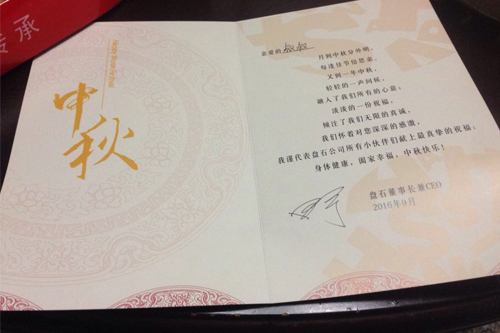 传承
中秋
亲爱的 叔叔
月到中秋分外明，
每逢佳节倍思亲。
又到一年中秋，
轻轻的一声问候，
融入了我们所有的心意；
淡淡的一份祝福，
倾注了我们无限的真诚，
我们怀着对您深深的感激，
我谨代表盘石公司所有小伙伴们献上最真挚的祝福：
身体健康，阖家幸福，中秋快乐！
盘石董事长兼CEO
2016年9月